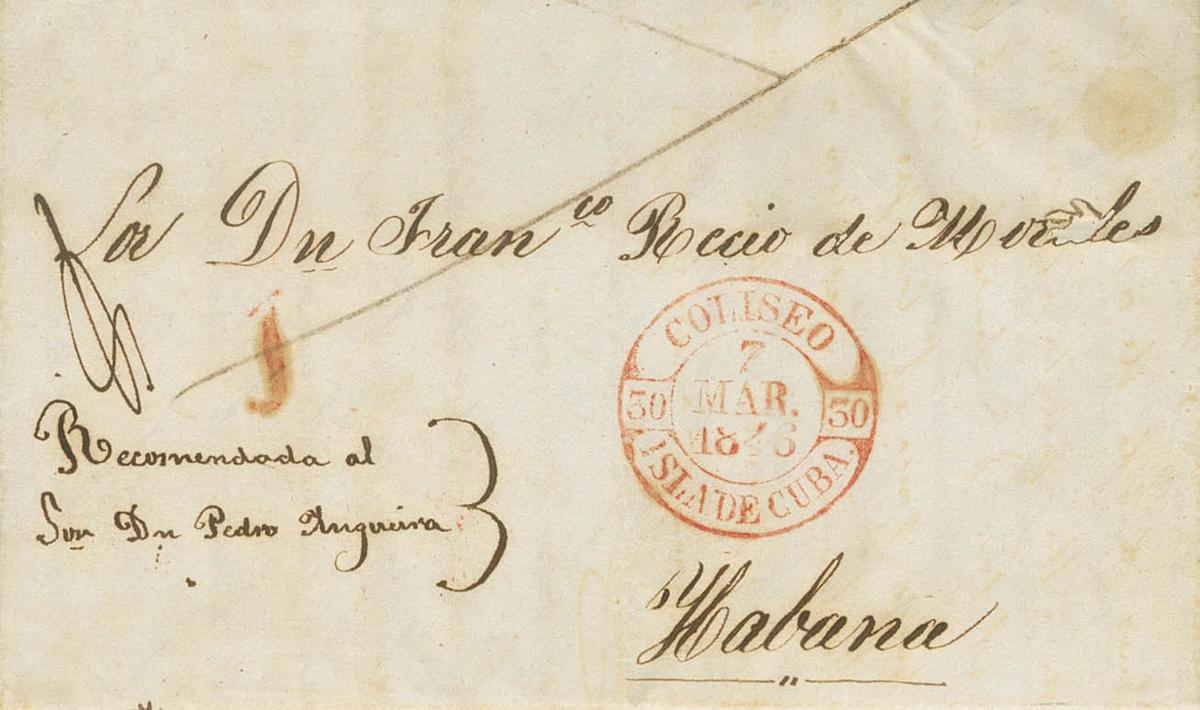 Sor Dn Franco Recio de Morales
1
COLISEO
7
MAR.
1846
30 30
ISLA DE CUBA.
Recomendada al
Sor Dn Pedro Angueira
Habana